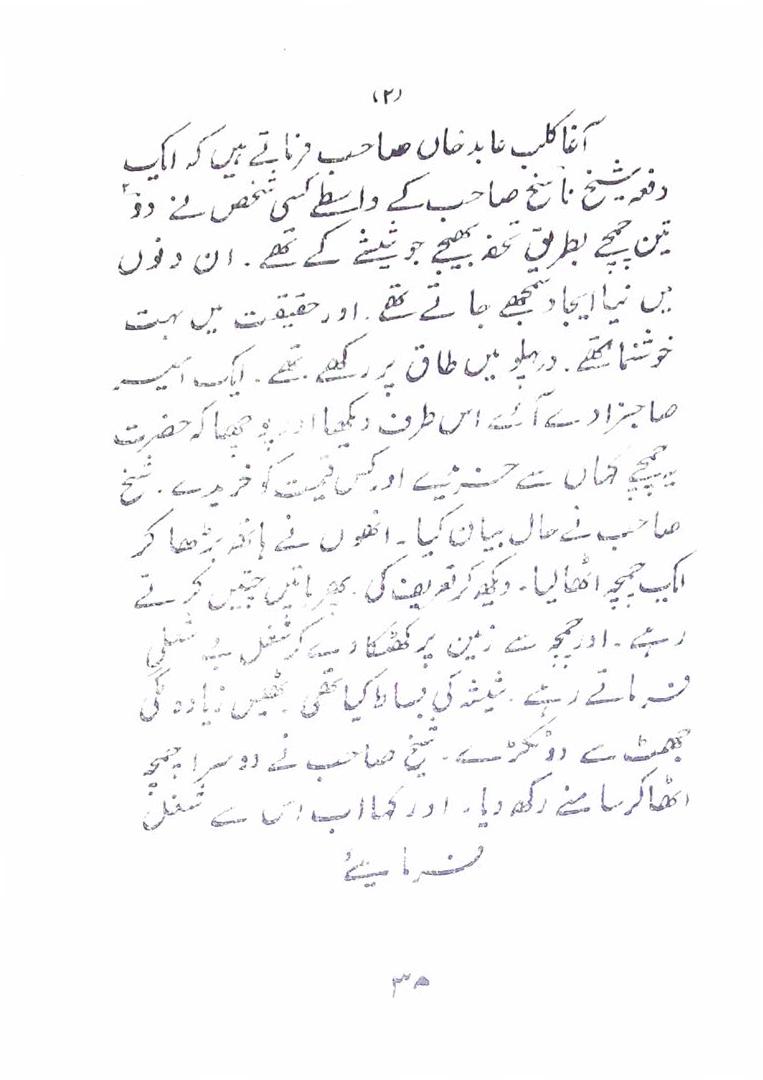 (۲)
آغا کلب عابد خاں صاحب فرماتے ہیں کہ ایک
دفعہ شیخ ناسخ صاحب کے واسطے کسی شخص نے دو
تین چمچے بطریق تحفہ بھیجے جو شیشے کے تھے۔ ان دنوں
میں نیا ایجاد سمجھے جاتے تھے۔ اور حقیقت میں بہت
خوشنما تھے۔ وہ پہلو میں طاق پر رکھے تھے۔ ایک امیر
صاحبزادے آئے اس طرف دیکھا اور پوچھا کہ حضرت
یہ چمچے کہاں سے خریدے اور کس قیمت کو خریدے۔ شیخ
صاحب نے حال بیان کیا۔ انھوں نے ہاتھ بڑھا کر
ایک چمچہ اٹھا لیا۔ دیکھ کر تعریف کی۔ پھر باتیں چیتیں کرتے
رہے۔ اور چمچہ سے زمین پر کھٹکا دے کر شغل بے شغلی
فرماتے رہے۔ شیشہ کی بساط کیا تھی ٹھیس زیادہ لگی
جھٹ سے دو ٹکڑے۔ شیخ صاحب نے دوسرا چمچہ
اٹھا کر سامنے رکھ دیا۔ اور کہا اب اس سے شغل
فرمائیے
۳۵